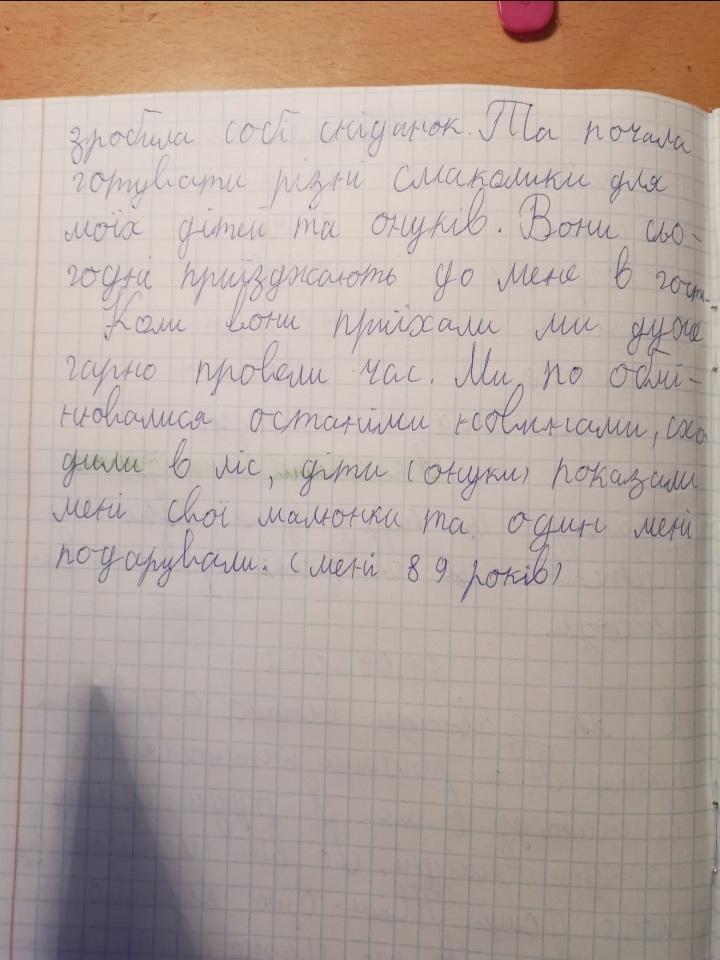 зробила собі сніданок. Та почала
готувати різні смаколики для
моїх дітей та онуків. Вони сьо-
годні приїзджають до мене в гості.
Коли вони приїхали ми дуже
гарно провели час. Ми по обмі-
нювалися останіми новинами, схо
дили в ліс, діти (онуки) показали
мені свої малюнки та один мені
подарували. (мені 89 років)